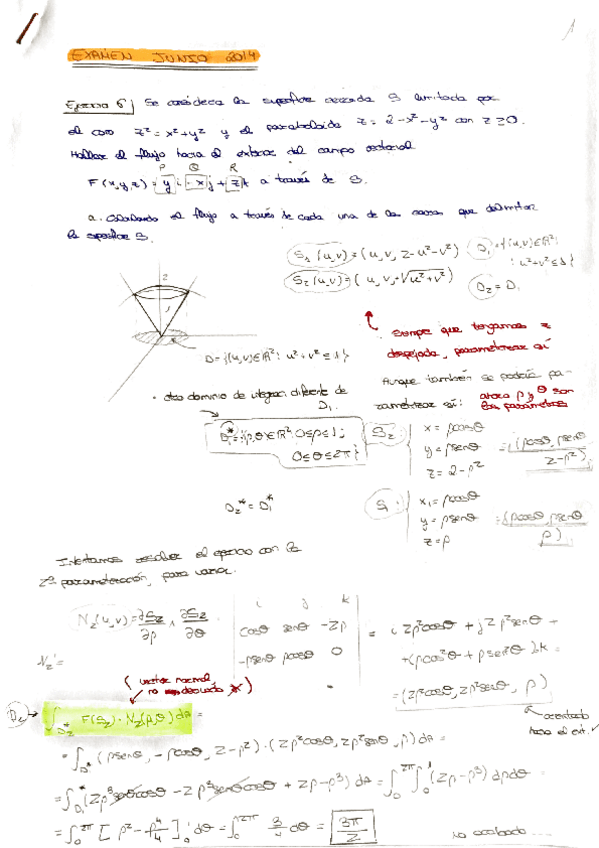 EXAMEN JUNIO 2014
Ejercicio 6) Se considera la superficie cerrada S limitada por
el cono z² = x²+y² y el paraboloide z = 2-x²-y² con z≥0.
Hallar el flujo hacia el exterior del campo vectorial
P Q R
F(x,y,z) = y i - x j + z k a través de S.
a. Calculando el flujo a través de cada una de las caras que delimitan
la superficie S.
S₁(u,v) = (u, v, 2-u²-v²) D₁={(u,v)∈R²:
: u²+v²≤1}
S₂(u,v) = (u, v, +√u²+v²) D₂ = D₁
2
1
D={(u,v)∈R²: u²+v²≤1}
Siempre que tengamos z
despejada, parametrizar así
Aunque también se podría pa-
rametrizar así: ahora ρ y θ son
los parámetros
• otro dominio de integr. diferente de
D₁.
D₁*={(ρ,θ)∈R², 0≤ρ≤1;
0≤θ≤2π}
S₂ { x = ρcosθ
y = ρsenθ = (ρcosθ, ρsenθ
z = 2-ρ² 2-ρ²)
D₂* = D₁*
S₁ { x₁ = ρcosθ
y = ρsenθ = (ρcosθ, ρsenθ
z = ρ ρ)
Intentamos resolver el ejercicio con la
2ª parametrización, para variar.
N₂(u,v) = ∂S₂/∂ρ ∧ ∂S₂/∂θ
N₂' =
| i j k |
| cosθ senθ -2ρ |
| -ρsenθ ρcosθ 0 |
= i 2ρ²cosθ + j 2ρ²senθ +
+(ρcos²θ + ρsen²θ)·k =
= (2ρ²cosθ, 2ρ²senθ, ρ)
orientado
hacia el ext. ✓
(vector normal,
D₂ → ∫_D₂* F(S₂)·N₂(ρ,θ) dA =
= ∫_D* (ρsenθ, -ρcosθ, 2-ρ²)·(2ρ²cosθ, 2ρ²senθ, ρ) dA =
= ∫_D₁* (2ρ³senθcosθ - 2ρ³senθcosθ + 2ρ-ρ³) dA = ∫₀^2π ∫₀^1 (2ρ-ρ³) dρdθ =
= ∫₀^2π [ρ² - ρ⁴/4]₀^1 dθ = ∫₀^2π 3/4 dθ = 3π/2
no acabado ....